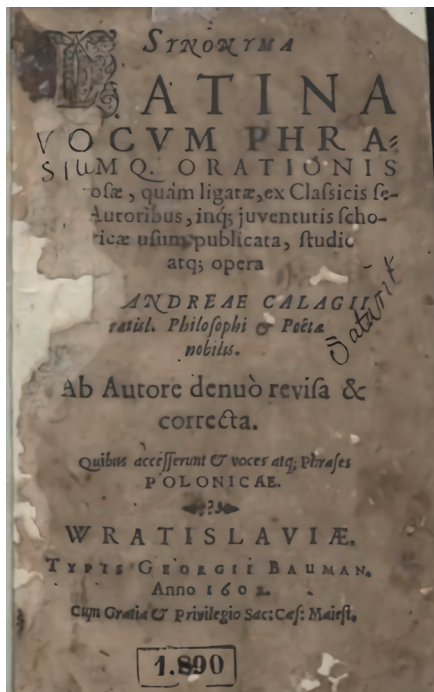 SYNONYMA
LATINA
VOCVM PHRA-
SIUMQ. ORATIONIS
osæ, quàm ligatæ, ex Claſſicis ſe-
Autoribus, inq; juventutis ſcho-
ricæ uſum publicata, ſtudio
atq; opera
ANDREAE CALAGII
ratiſl. Philoſophi & Poëtæ
nobilis.
Ab Autore denuò reviſa &
correcta.
Quibus acceſſerunt & voces atq; Phraſes
POLONICAE.
WRATISLAVIÆ.
TYPIS GEORGII BAUMAN.
Anno 1602.
Cum Gratia & Privilegio Sac: Cæſ: Maieſt.
1.890